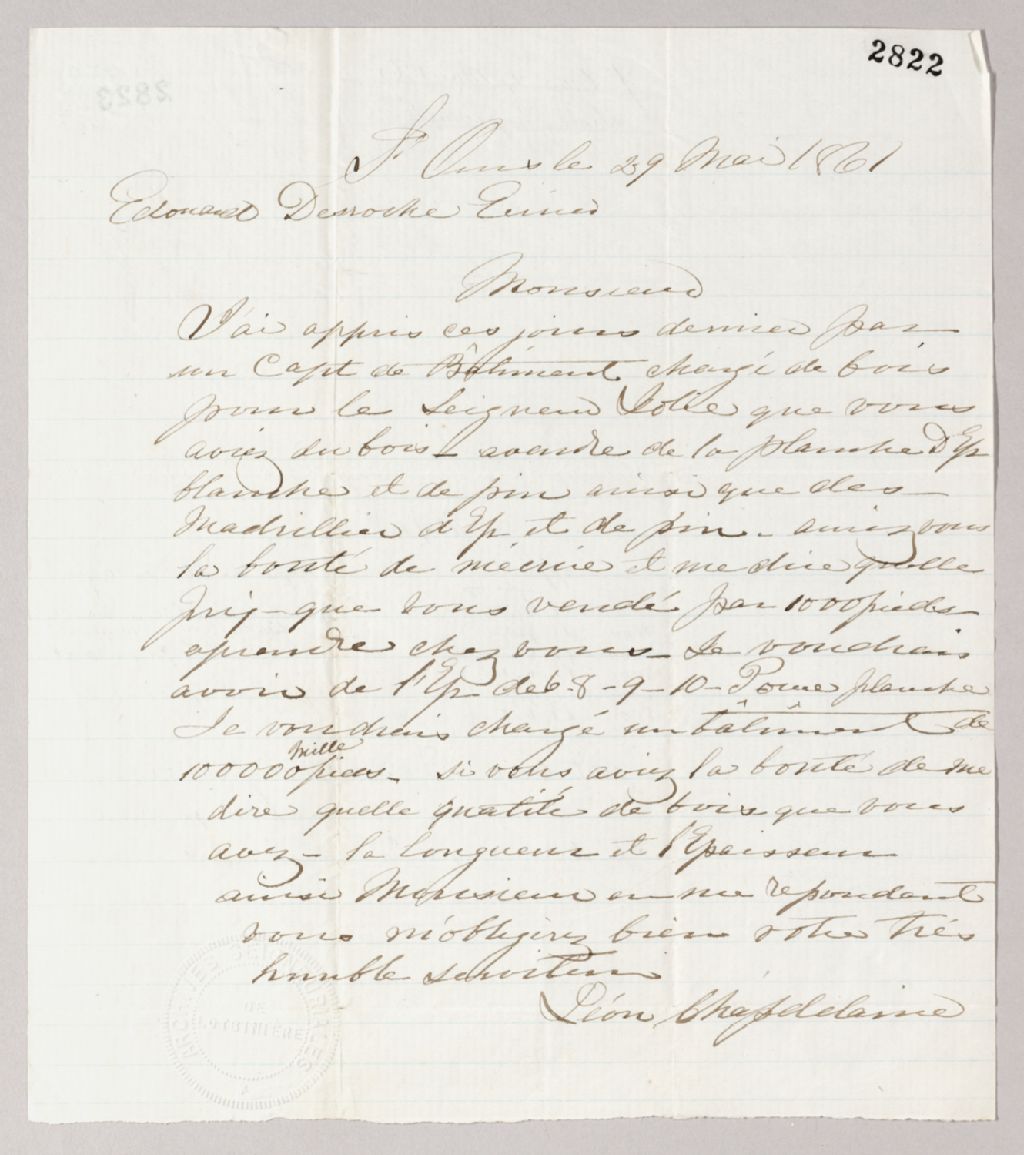 2822
St Ours le 29 Mai 1861
Edouard Desroche Ecuier
Monsieur
J'ai appris ces jours dernier par
un Capt de Bâtiment chargé de bois
pour le Seigneur Jolie que vous
aviez du bois avendre de la planche D'Ep
blanche et de pin ainsi que des
Madrillier d'Ep et de pin - auriez vous
la bonté de mécrire et me dire quelle
prix - que vous vendé par 1000 pieds
aprendre chez vous - Je voudrais
avoir de l'Ep de 6 - 8 - 9 - 10 - Pouce planche
Je voudrais chargé un bâtîment de
mille
100000 pieds - si vous aviez la bonté de me
dire quelle qualité de bois que vous
avez - la longueur et l'Epaisseur
ainsi Monsieur en me repondant
vous m'obligirez bien votre très
humble serviteur
Léon Chapdelaine
ARCHIVES DE
DE
LOTBINIERE